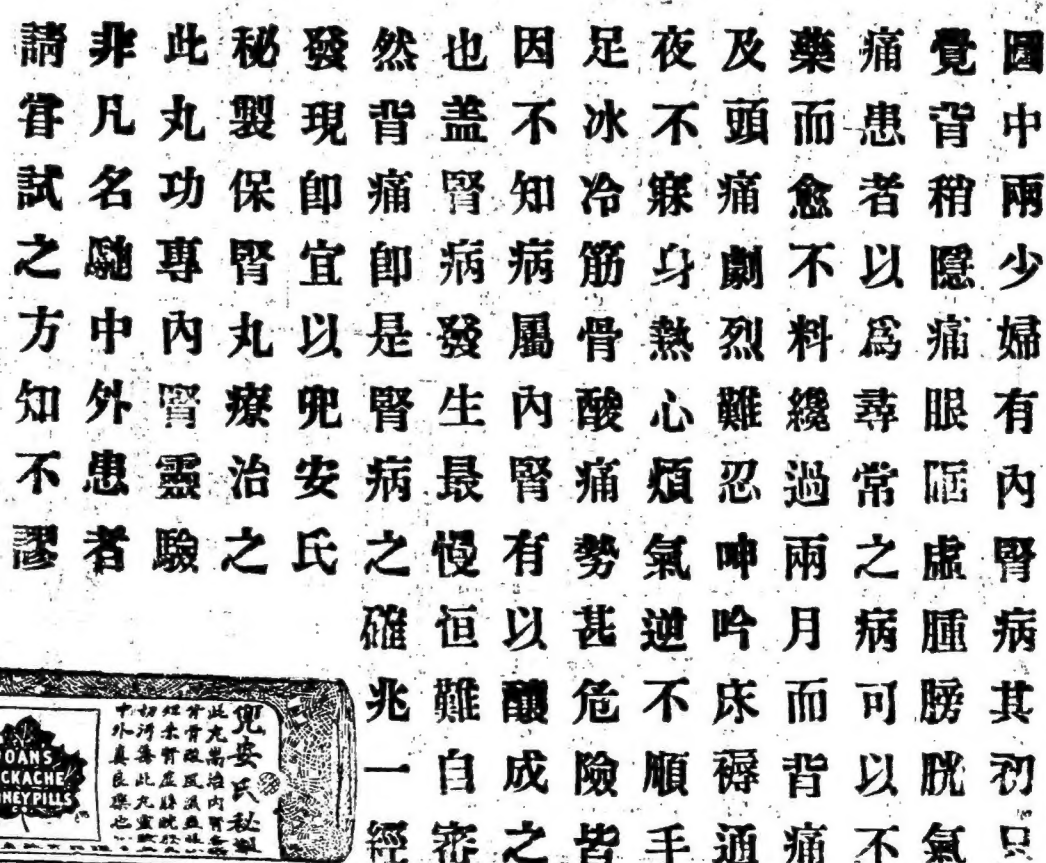 圖中兩少婦有內腎病其初只
覺背稍隱痛眼眶虛腫膀胱氣
痛患者以爲尋常之病可以不
藥而愈不料纔過兩月而背痛
及頭痛劇烈難忍呻吟床褥通
夜不寐身熱心煩氣逆不順手
足冰冷筋骨酸痛勢甚危險皆
因不知病屬內腎有以釀成之
也盖腎病發生最慢恒難自審
然背痛卽是腎病之確兆一經
發現卽宜以兜安氏
秘製保腎丸療治之
此丸功專內腎靈驗
非凡名馳中外患者
請嘗試之方知不謬
兜安氏秘製
此丸耑治内腎
中外真良藥也
OANS
CKACHE
NEY PILLS